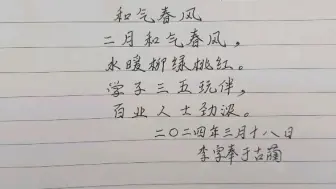 和气春风
二月和气春风，
水暖柳绿桃红。
学子三五玩伴，
百业人士劲浓。
二〇二四年三月十八日
李字奉于古蔺